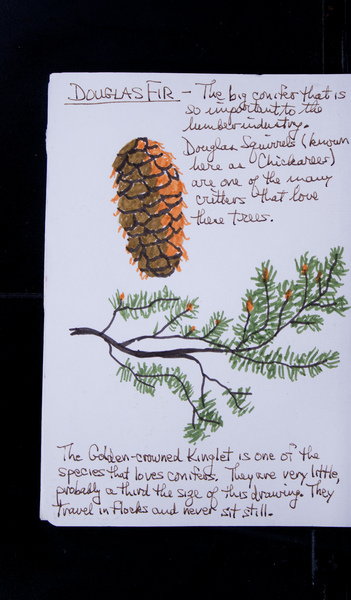 DOUGLAS FIR - The big conifer that is
so important to the
lumber industry.
Douglas Squirrels (known
here as Chickarees)
are one of the many
critters that love
these trees.
The Golden-crowned Kinglet is one of the
species that loves conifers. They are very little,
probably a third the size of this drawing. They
travel in flocks and never sit still.